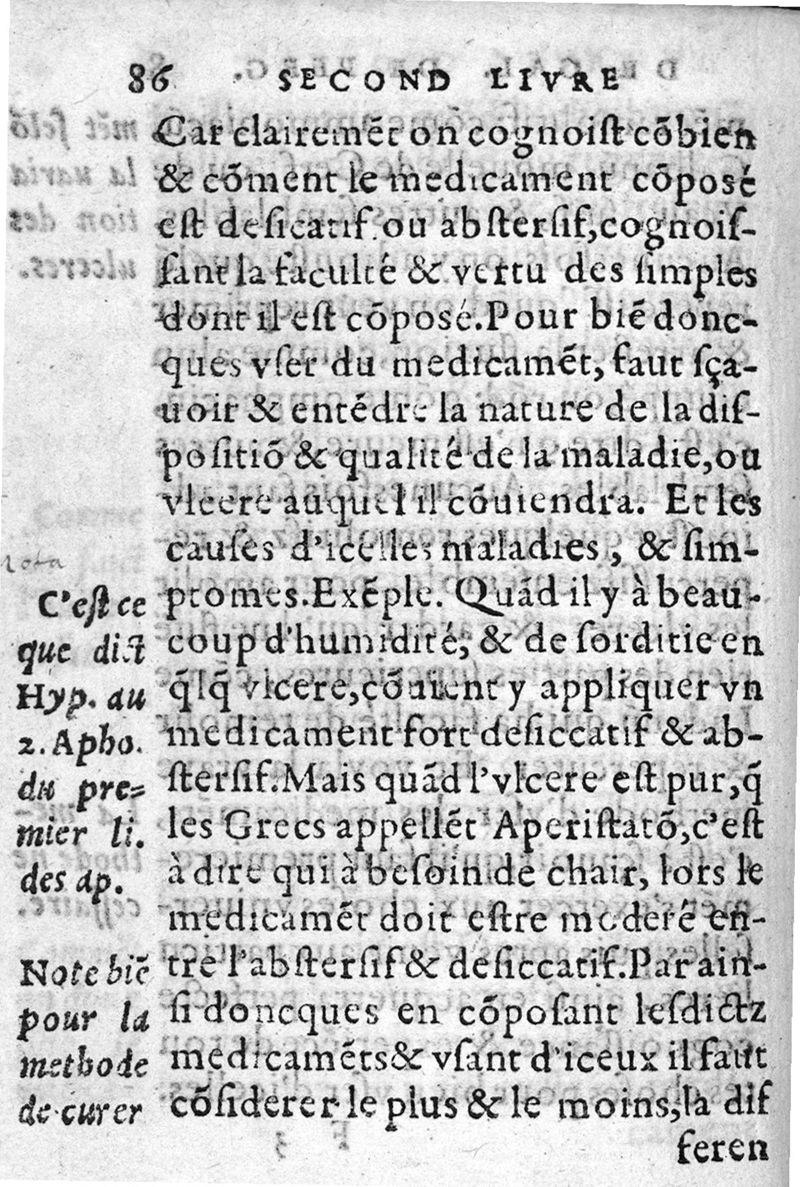 86 SECOND LIVRE
Car clairemẽt on cognoiſt cõbien
& cõment le medicament cõposé
eſt deſicatif ou abſterſif, cognoiſ-
ſant la faculté & vertu des ſimples
dont il eſt cõposé. Pour biẽ donc-
ques vſer du medicamẽt, faut ſça-
uoir & entẽdre la nature de la diſ-
poſitiõ & qualité de la maladie, ou
vlcere auquel il cõuiendra. Et les
cauſes d'icelles maladies, & ſim-
ptomes. Exẽple. Quãd il y à beau-
coup d'humidité, & de ſorditie en
q̃lq̃ vlcere, cõuient y appliquer vn
medicament fort deſiccatif & ab-
ſterſif. Mais quãd l'vlcere eſt pur, q̃
les Grecs appellẽt Aperiſtatõ, c'eſt
à dire qui à beſoin de chair, lors le
medicamẽt doit eſtre moderé en-
tre l'abſterſif & deſiccatif. Par ain-
ſi doncques en cõpoſant leſdictz
medicamẽts & vſant d'iceux il faut
cõſiderer le plus & le moins, la dif
feren
nota
C'eſt ce
que dict
Hyp. au
2. Apho.
du pre=
mier li.
des ap.
Note biẽ
pour la
methode
de curer